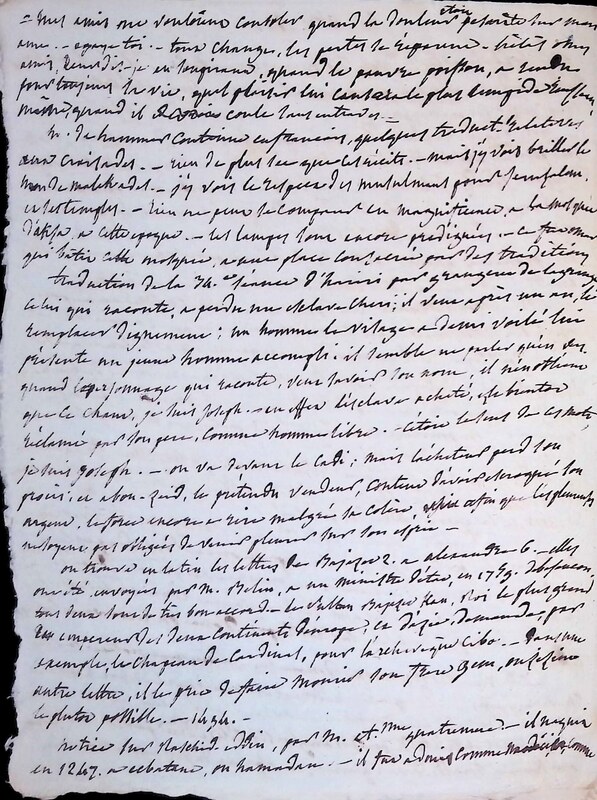 = mes amis me vouloient consoler quand la douleur étoit sur mon
ame. - egaye toi - tout change, les pertes se réparent -
amis, leur dis-je en soupirant, quand le pauvre poisson, a rendu
pour toujours la vie, quel plaisir lui causera le plus limpide
quand il coule sur =
M. de hammer continue en francais, quelques traduct. relatives
aux croisades. - rien de plus sec que ces récits. - mais j'y vois briller le
nom de malek adel. - j'y vois le respect des musulmans pour Jerusalem,
et ses temples. - rien ne peut se comparer en magnificence, a la mosquée
d'aksa, a cette époque. - les lampes sont encore prodiguées. - ce fut omar
qui batir cette mosquée, a une place consacrée par des traditions
traduction de la 34.e séance d'hariri par grangeret de lagrange
celui qui raconte, a perdu une esclave cheri; il veut après un an, le
remplacer dignement; un homme le visage a demi voilé lui
présente un jeune homme accompli. il semble ne parler qu'en vers
quand le personnage qui raconte, veut savoir son nom, il n'en obtient
que ce chant, je suis joseph. - en effet l'esclave acheté, est bientot
réclamé par son pere, comme homme libre. - c'étoit le sens de ces mots,
je suis joseph. - - on va devant le cadi; mais l'acheteur perd son
procès; et abou-zeid, le prétendu vendeur, content d'avoir escroqué son
argent, le force encore a rire malgré sa colère, afin que les
ne soyent pas obligées de venir pleurer sur son
on trouve en latin les lettres de Bajazet 2. a alexandre 6. - elles
ont été envoyées par M. Belin, a un ministre d'état, en 1759.
tous deux sont de très bon accord. - le sultan Bajazet kan, roi le plus grand
empereur des deux continents d'europe, et d'asie, demande, par
exemple, le chapeau de cardinal, pour l'archevêque Cibo. - dans une
autre lettre, il le prie de faire mourir son frere gem, ou zizim
le plutot possible. - 1494. -
notice sur Raschid-eddin, par M. et. nne quatremere - il naquit
en 1247, a ecbatane, ou hamadan. - il fut admis comme médecin, comme